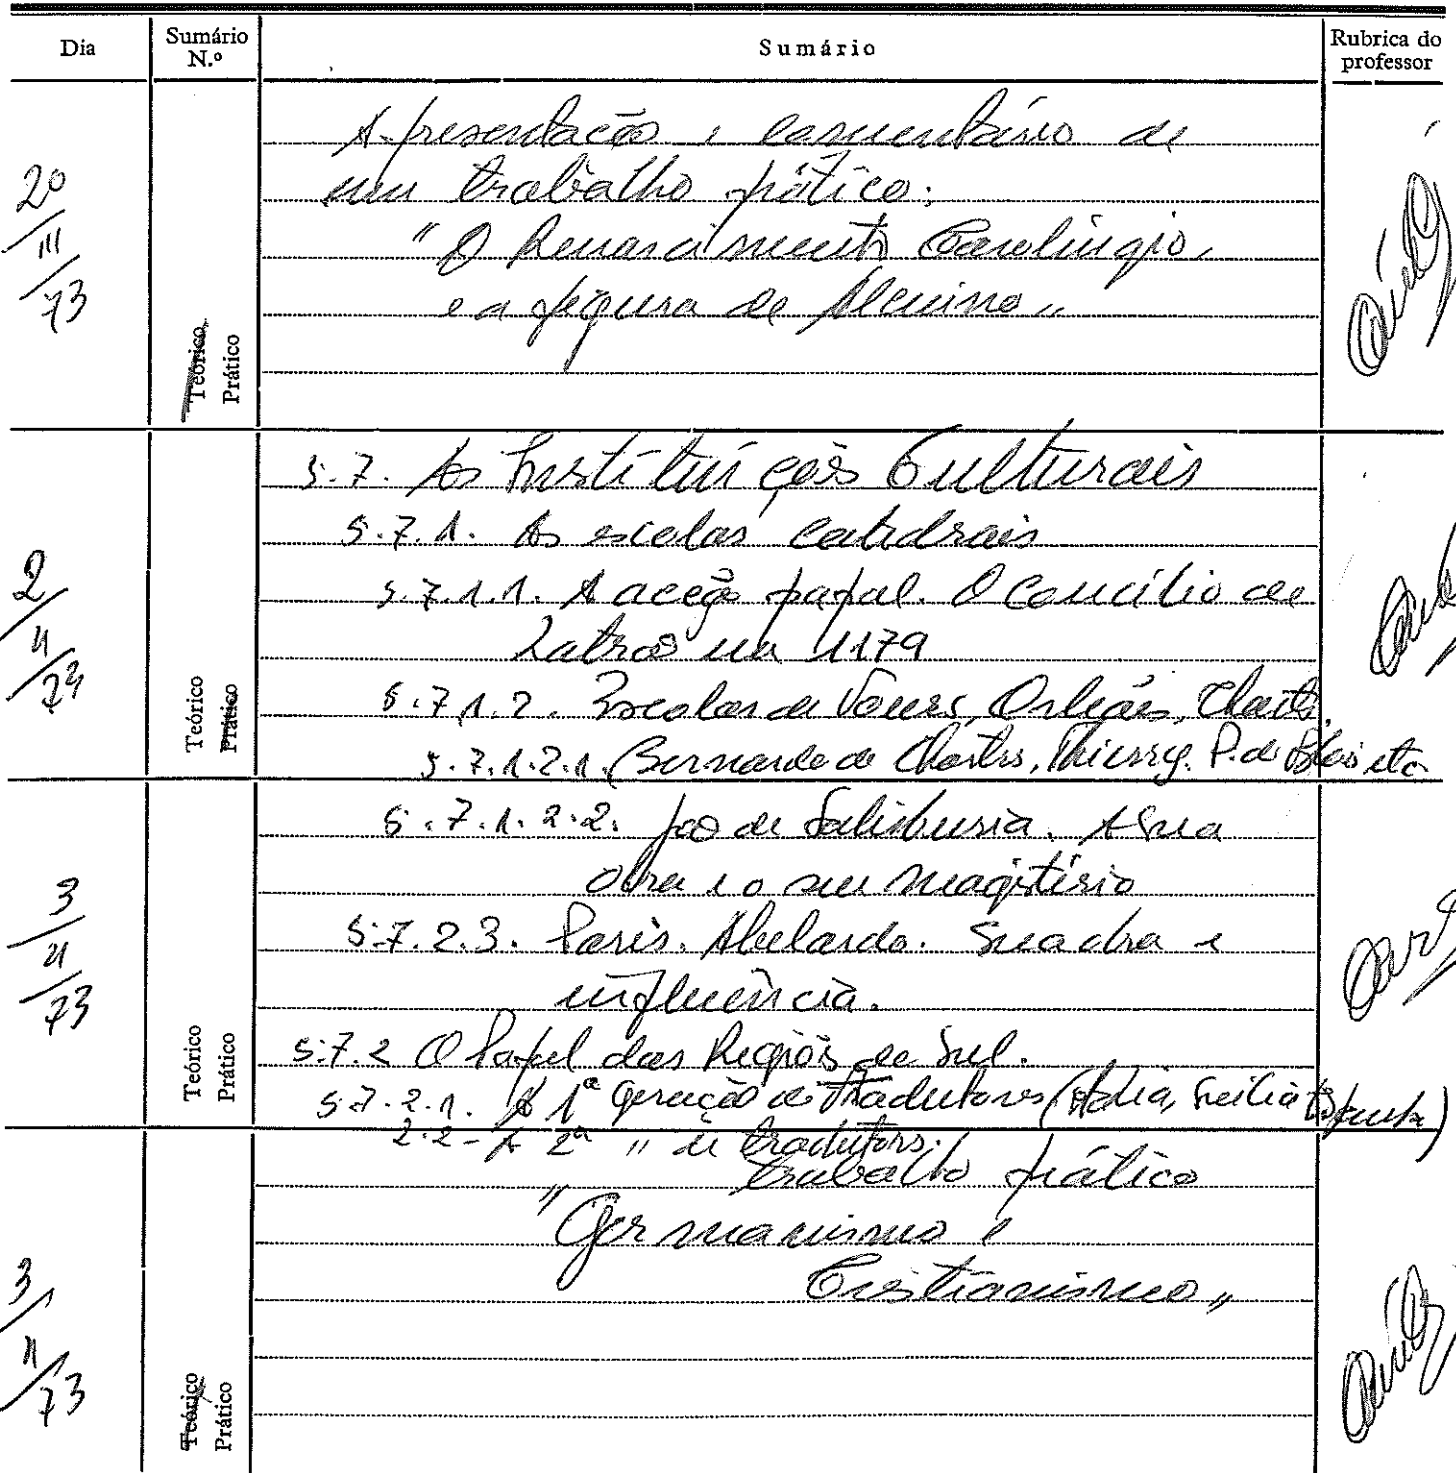 Dia
Sumário N.º
Sumário
Rubrica do professor
20/III/73
Teórico
Prático
Apresentação e comentário de
um trabalho prático:
"O Renascimento Carolíngio,
e a figura de Alcuino"
2/4/73
Teórico
Prático
5.7. As Instituições Culturais
5.7.1. As escolas catedrais
5.7.1.1. A acção papal. O Concílio de
Latrão em 1179
5.7.1.2. Escolas de Tours, Orleães, Chartres.
5.7.1.2.1. Bernardo de Chartres, Thierry. P. de Blois etc
3/4/73
Teórico
Prático
5.7.1.2.2. João de Salisbúria. A sua
obra e o seu magistério
5.7.2.3. Paris. Abelardo. Sua obra e
influência.
5.7.2 O Papel das Regiões do Sul.
5.7.2.1. A 1ª Geração de Tradutores (Itália, Sicília
2.2 - A 2ª " de tradutores.
3/4/73
Teórico
Prático
trabalho prático
"Germanismo e
Cristianismo"